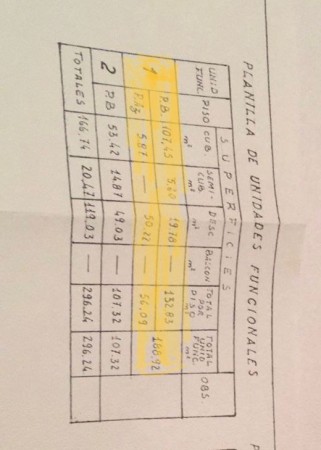 PLANILLA DE UNIDADES FUNCIONALES
SUPERFICIES
UNID FUNC. PISO CUB. m² SEMI-CUB m² DESC m² BALCON m² TOTAL POR PISO m² TOTAL UNID FUNC. m² OBS
1 P.B. 107,45 5.60 19.78 — 132.83 188,92
5.87 — 50.22 — 56.09
2 P.B 53.42 14.87 49.03 — 107.32 107.32
TOTALES 166.74 20.47 119.03 — 296.24 296.24